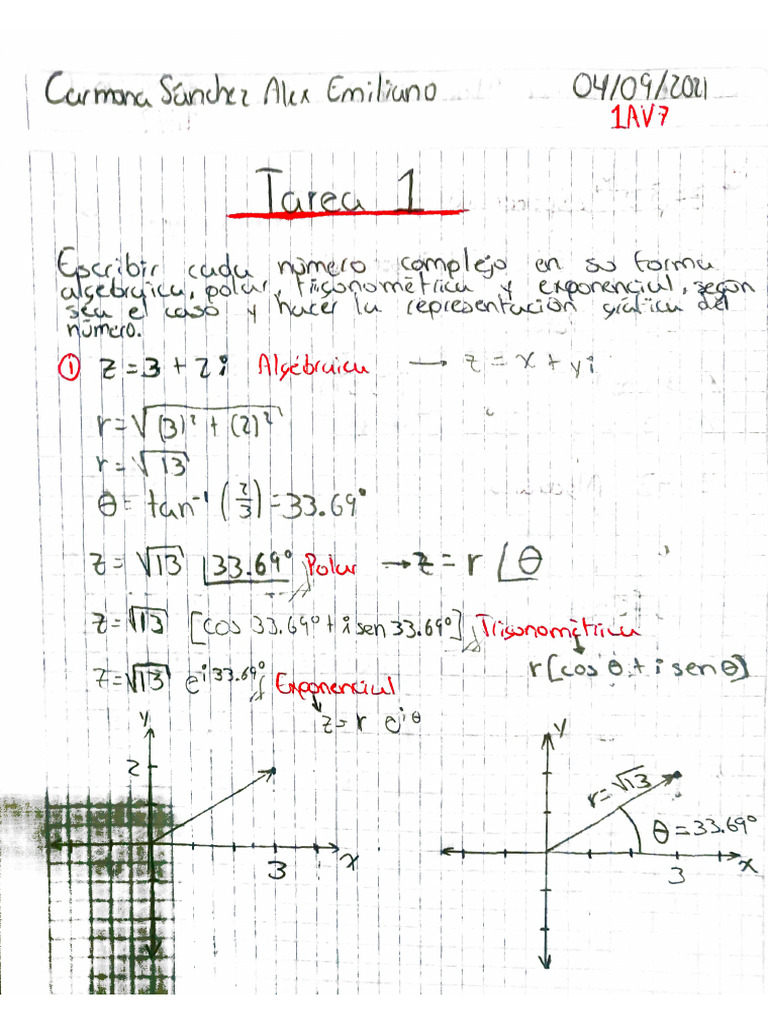 Carmona Sánchez Alex Emiliano 04/09/2021
1AV7
Tarea 1
Escribir cada número complejo en su forma
algebraica, polar, trigonométrica y exponencial, según
sea el caso y hacer la representación gráfica del
número.
① z = 3 + 2i Algebraica → z = x + yi
r = √(3)² + (2)²
r = √13
θ = tan⁻¹ (2/3) = 33.69°
z = √13 ∠33.69° Polar → z = r ∠θ
z = √13 [cos 33.69° + i sen 33.69°] Trigonométrica
r[cos θ + i sen θ]
z = √13 e^i33.69° Exponencial
z = r e^iθ
y
2
3
x
y
r = √13
θ = 33.69°
3
x